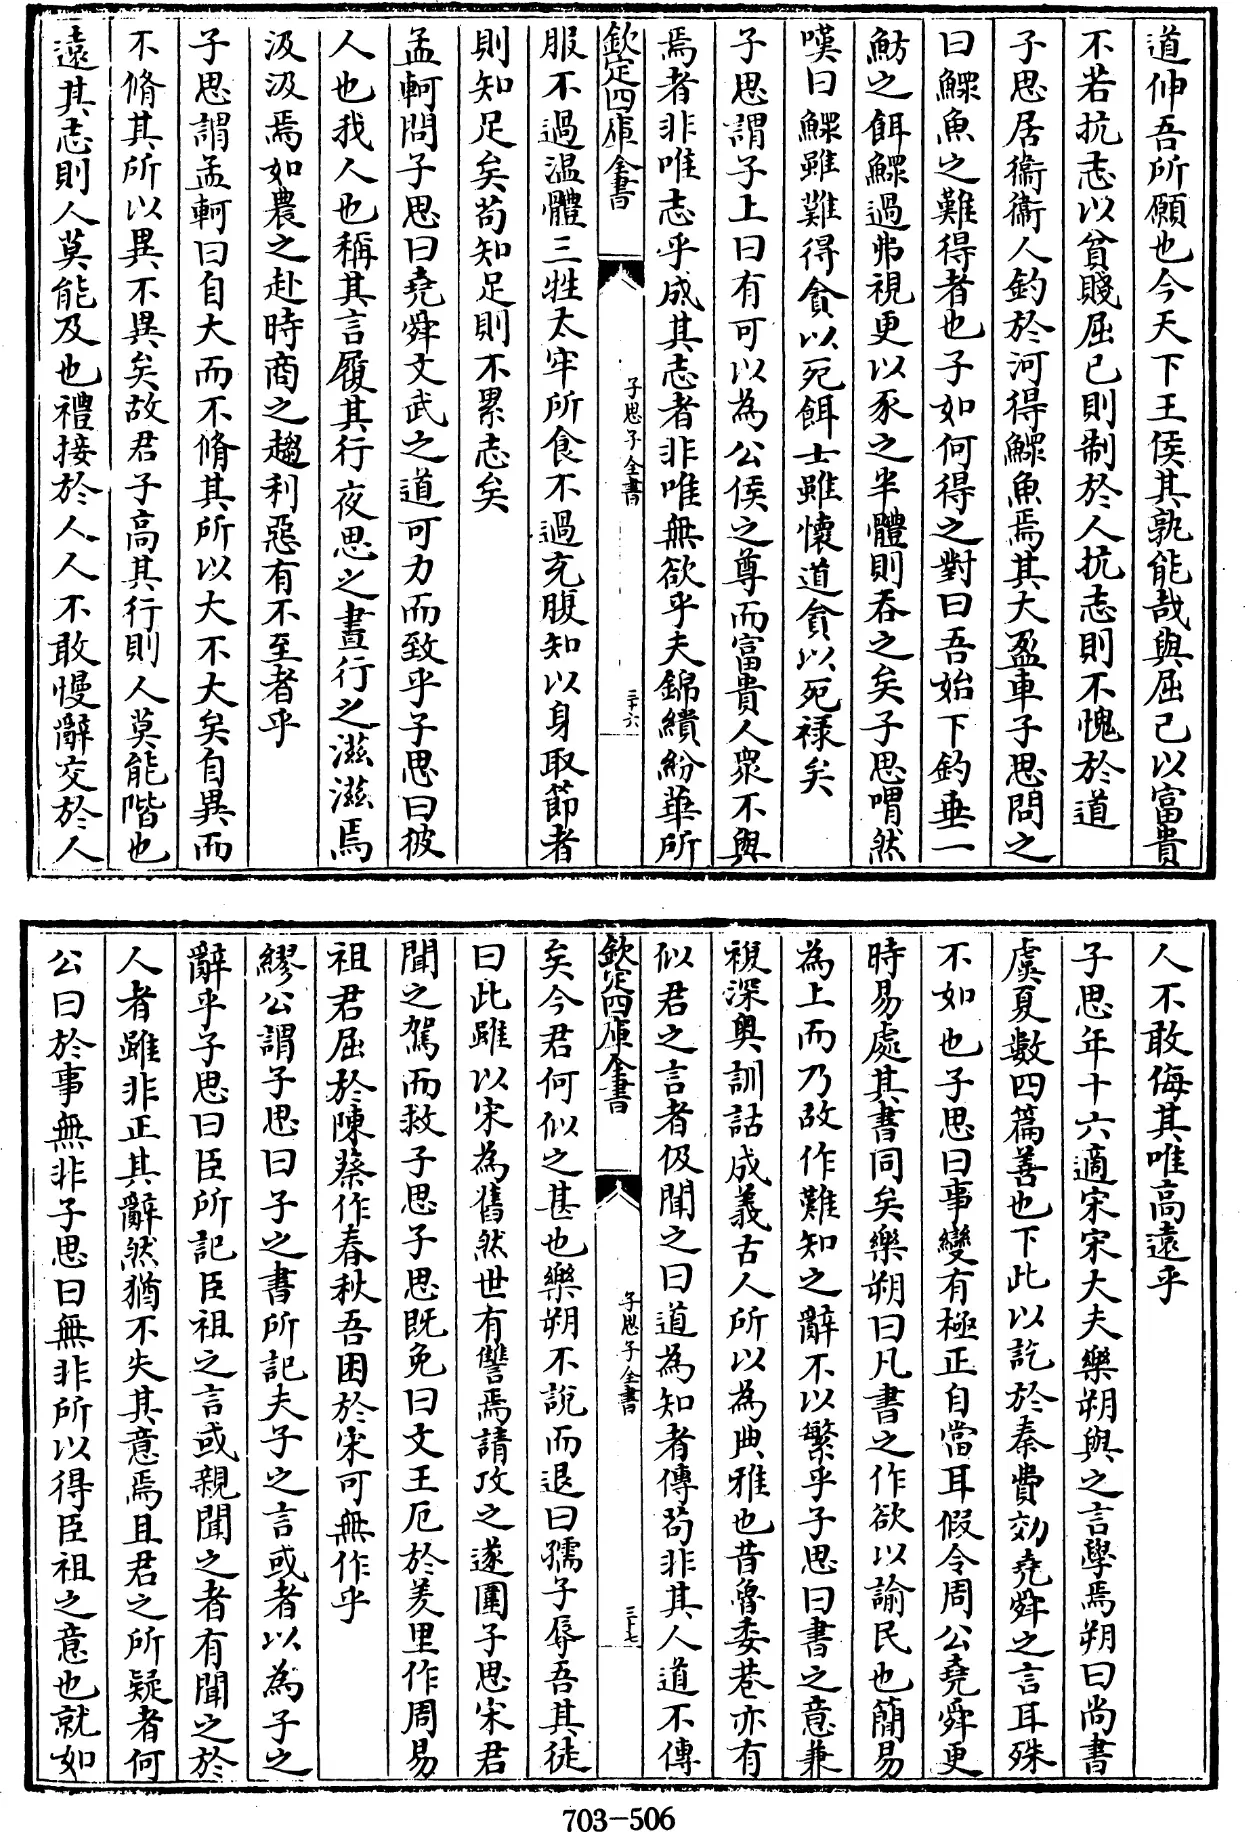 道伸吾所願也今天下王侯其孰能哉與屈己以富貴
不若抗志以貧賤屈己則制於人抗志則不愧於道
子思居衞衞人釣於河得鰥魚焉其大盈車子思問之
曰鰥魚之難得者也子如何得之對曰吾始下釣垂一
魴之餌鰥過弗視更以豕之半體則吞之矣子思喟然
嘆曰鰥雖難得貪以死餌士雖懷道貪以死祿矣
子思謂子上曰有可以為公侯之尊而富貴人衆不與
焉者非唯志乎成其志者非唯無欲乎夫錦繢紛華所
欽定四庫全書
子思子全書
三十六
服不過溫體三牲太牢所食不過充腹知以身取節者
則知足矣苟知足則不累志矣
孟軻問子思曰堯舜文武之道可力而致乎子思曰彼
人也我人也稱其言履其行夜思之晝行之滋滋焉
汲汲焉如農之赴時商之趨利惡有不至者乎
子思謂孟軻曰自大而不脩其所以大不大矣自異而
不脩其所以異不異矣故君子高其行則人莫能階也
遠其志則人莫能及也禮接於人人不敢慢辭交於人
人不敢侮其唯高遠乎
子思年十六適宋宋大夫樂朔與之言學焉朔曰尚書
虞夏數四篇善也下此以訖於秦費効堯舜之言耳殊
不如也子思曰事變有極正自當耳假令周公堯舜更
時易處其書同矣樂朔曰凡書之作欲以諭民也簡易
為上而乃故作難知之辭不以繁乎子思曰書之意兼
複深奥訓詁成義古人所以為典雅也昔魯委巷亦有
似君之言者伋聞之曰道為知者傳苟非其人道不傳
欽定四庫全書
子思子全書
三十七
矣今君何似之甚也樂朔不說而退曰孺子辱吾其徒
曰此雖以宋為舊然世有讐焉請攻之遂圍子思宋君
聞之駕而救子思子思既免曰文王厄於羑里作周易
祖君屈於陳蔡作春秋吾困於宋可無作乎
繆公謂子思曰子之書所記夫子之言或者以為子之
辭乎子思曰臣所記臣祖之言或親聞之者有聞之於
人者雖非正其辭然猶不失其意焉且君之所疑者何
公曰於事無非子思曰無非所以得臣祖之意也就如
703-506